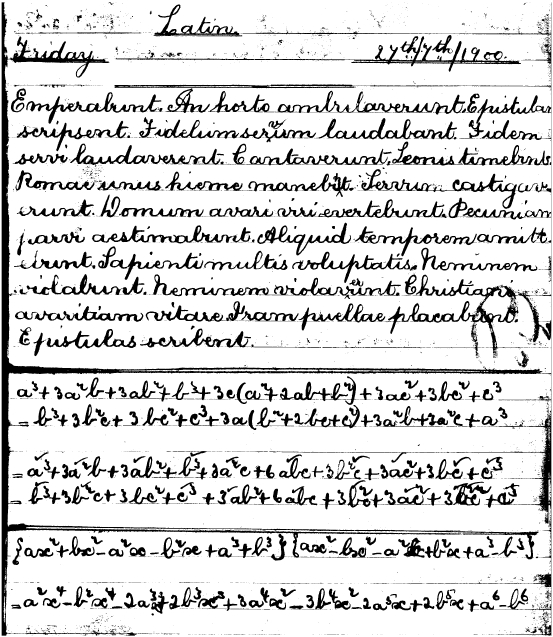 Latin.
Friday 27th/7th/1900.
Emperabunt. An horto ambulaverunt. Epistulas
scripsent. Fidelum servum laudabant. Fidem
servi laudaverent. Cantaverunt. Leonis timebunt.
Romae unus hieme manebit. Servum castigav-
erunt. Domum avari viri evertebunt. Pecuniam
parvi aestimabunt. Aliquid temporem amitt-
erunt. Sapienti multis voluptatis. Neminem
violabunt. Neminem violaverint. Christian
avaritiam vitare. Iram puellae placabunt.
Epistulas scribent.
a³+3a²b+3ab²+b³+3c(a²+2ab+b²)+3ac²+3bc²+c³
= b³+3b²c+3bc²+c³+3a(b²+2bc+c²)+3a²b+3a²c+a³
= a³+3a²b+3ab²+b³+3a²c+6abc+3b²c+3ac²+3bc²+c³
= b³+3b²c+3bc²+c³+3ab²+6abc+3b²+3ac²+3bc²+c³
{ax²+bx²-a²x-b²x+a³+b³}{ax²-bx²-a²x+b²x+a³-b³}
=a²x⁴-b²x⁴-2a³x³+2b³x³+3a⁴x²-3b⁴x²-2a⁵x+2b⁵x+a⁶-b⁶